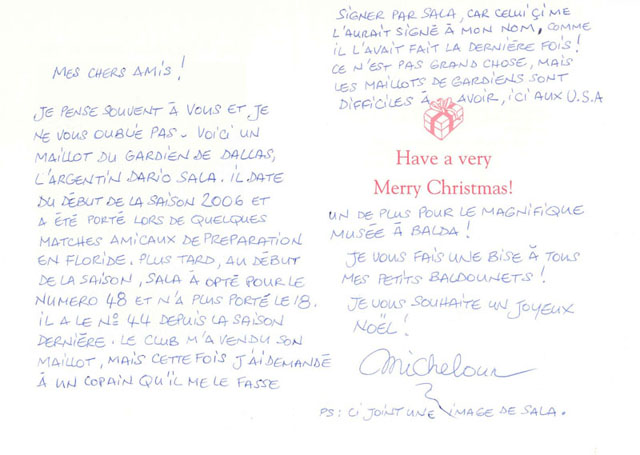 MES CHERS AMIS!
JE PENSE SOUVENT À VOUS ET JE
NE VOUS OUBLIE PAS. VOICI UN
MAILLOT DU GARDIEN DE DALLAS,
L'ARGENTIN DARIO SALA. IL DATE
DU DÉBUT DE LA SAISON 2006 ET
A ÉTÉ PORTÉ LORS DE QUELQUES
MATCHES AMICAUX DE PREPARATION
EN FLORIDE. PLUS TARD, AU DÉBUT
DE LA SAISON, SALA À OPTÉ POUR LE
NUMERO 48 ET N'A PLUS PORTÉ LE 18.
IL A LE Nº 44 DEPUIS LA SAISON
DERNIÈRE. LE CLUB M'A VENDU SON
MAILLOT, MAIS CETTE FOIS J'AI DEMANDÉ
À UN COPAIN QU'IL ME LE FASSE
SIGNER PAR SALA, CAR CELUI ÇI ME
L'AURAIT SIGNÉ À MON NOM, COMME
IL L'AVAIT FAIT LA DERNIÈRE FOIS!
CE N'EST PAS GRAND CHOSE, MAIS
LES MAILLOTS DE GARDIENS SONT
DIFFICILES À AVOIR, ICI AUX U.S.A
Have a very
Merry Christmas!
UN DE PLUS POUR LE MAGNIFIQUE
MUSÉE À BALDA!
JE VOUS FAIS UNE BISE À TOUS
MES PETITS BALDOUNETS!
JE VOUS SOUHAITE UN JOYEUX
NOËL!
Micheloun
PS: CI JOINT UNE IMAGE DE SALA.